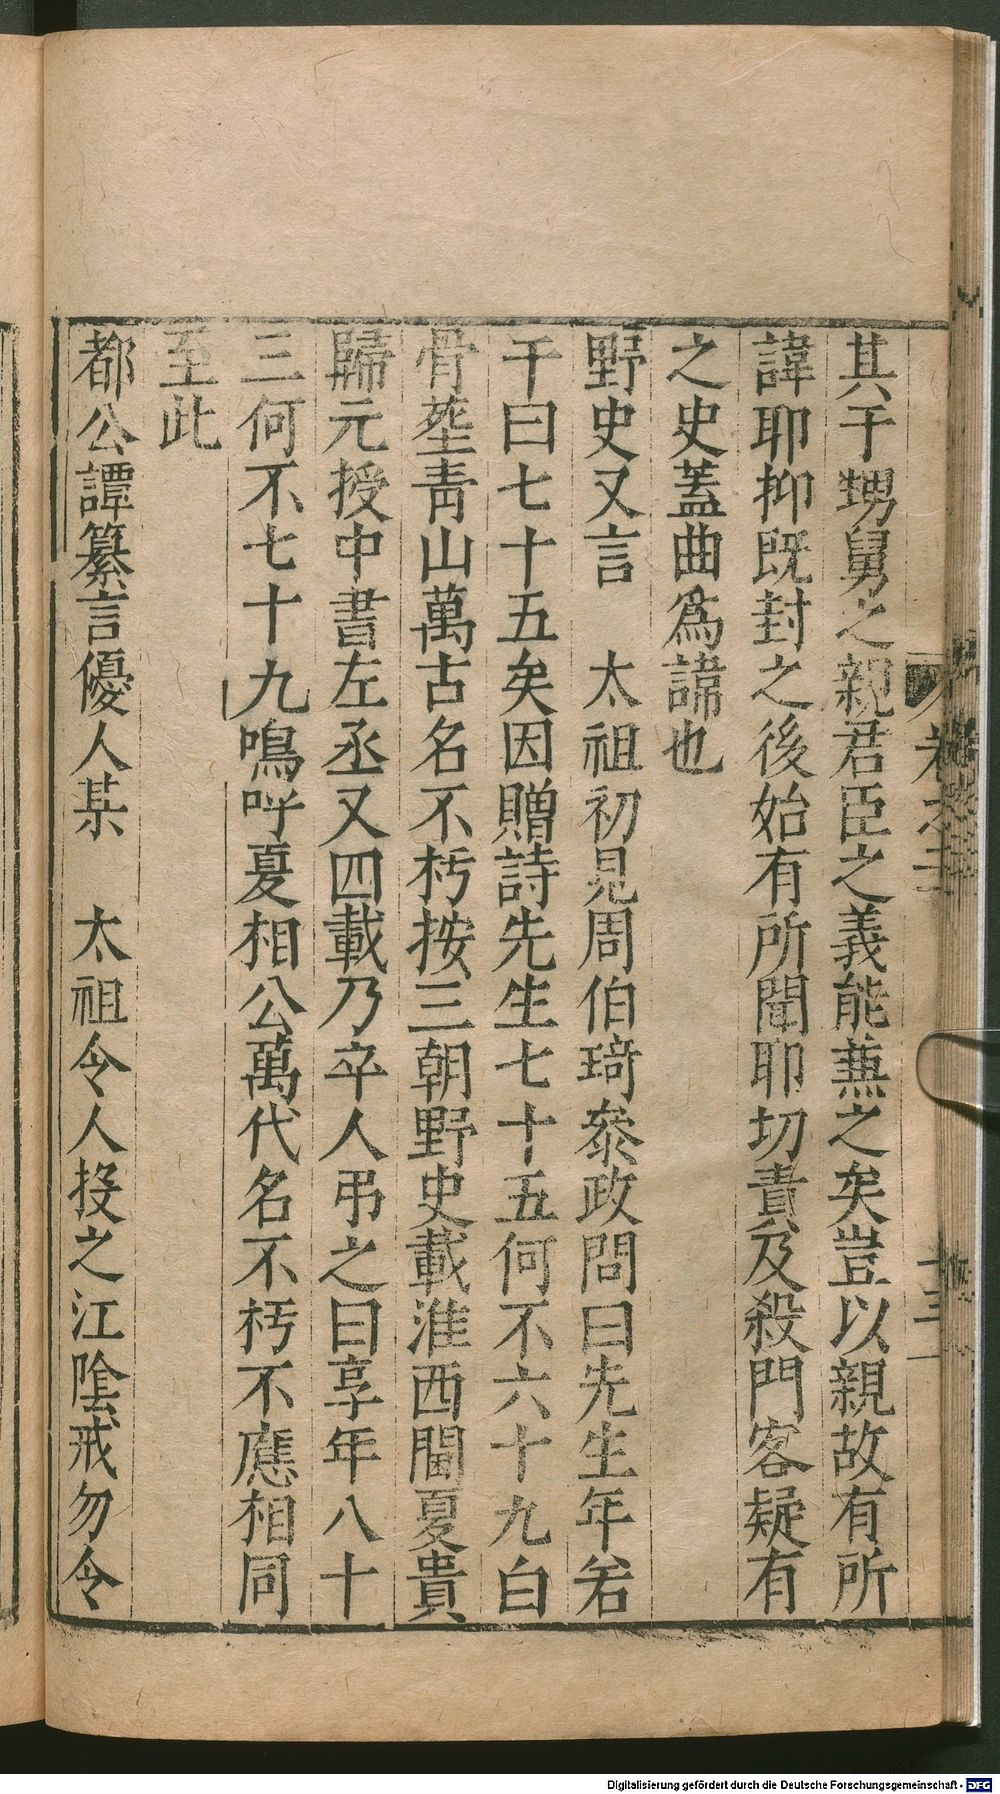 其于甥舅之親君臣之義能蕪之矣豈以親故有所
諱耶抑既封之後始有所聞耶切責及殺門客疑有
之史蓋曲為諱也
野史又言　太祖初見周伯琦叅政問曰先生年若
干曰七十五矣因贈詩先生七十五何不六十九白
骨塟青山萬古名不朽按三朝野史載淮西閫夏貴
歸元授中書左丞又四載乃卒人弔之曰享年八十
三何不七十九鳴呼夏相公萬代名不朽不應相同
至此
都公譚纂言優人某　太祖令人投之江隂戒勿令
卷之三
十三
Digitalisierung gefördert durch die Deutsche Forschungsgemeinschaft - DFG